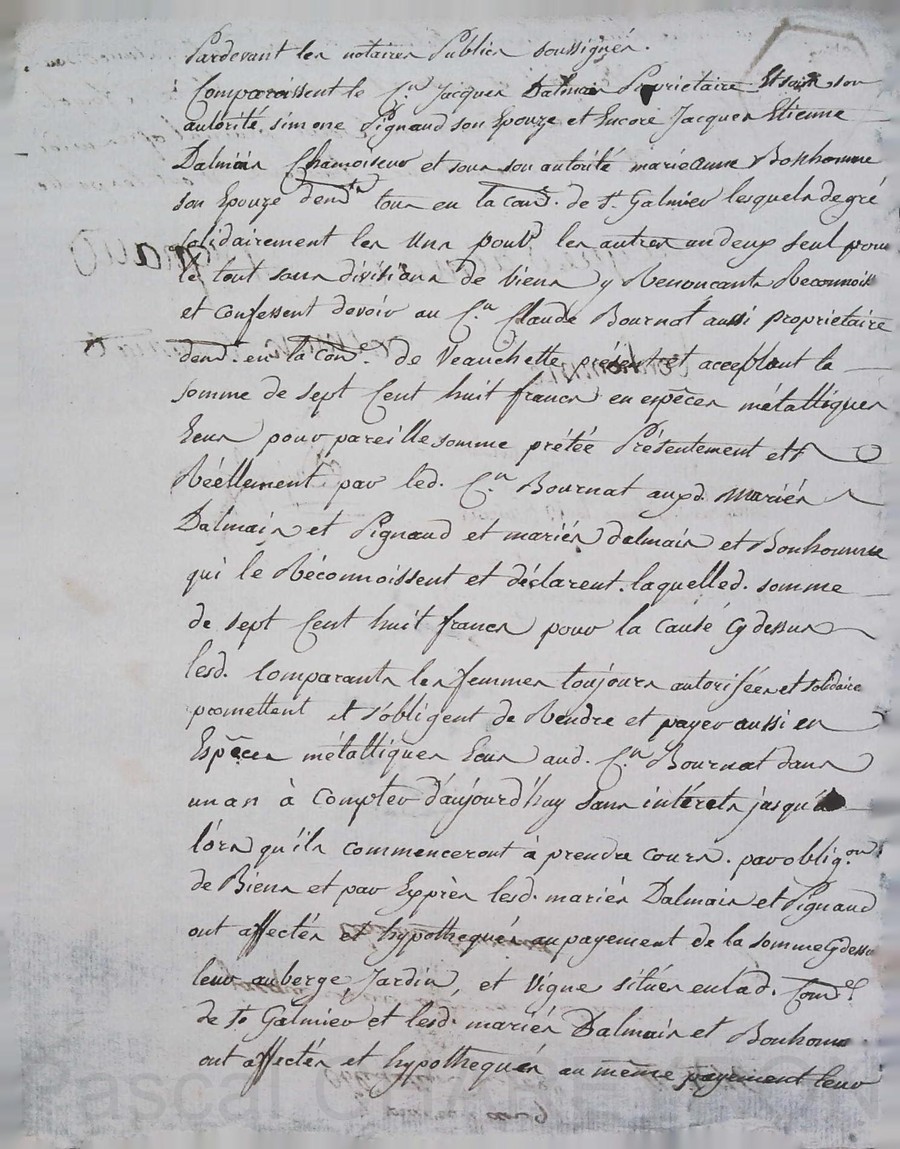 Pardevant les notaires Publics soussignés.
Comparoissent le C.en Jacques Dalmais Proprietaire Et sous son
autorité simone Pignaud son Epouze et Encore Jacques Etienne
Dalmais Chamoiseur et sous son autorité marieanne Bonhomme
son Epouze demt. tous en la con. de St. Galmier lesquels de gré
solidairement les Uns pour les autres un deux seul pour
le tout sans divisions de biens y Renonçants Reconnois
et Confessent devoir au C.en Claude Bournat aussi proprietaire
demt. en la con. de Veauchette présent et acceptant la
somme de sept Cent huit francs en espèces métalliques
Ecus pour pareille somme prétée Présentement et
Réellement par led. C.en Bournat auxd. Mariés
Dalmais et Pignaud et mariés dalmais et Bonhomme
qui le Réconnoissent et déclarent. laquelled. somme
de sept Cent huit francs pour la Cause Cy dessus
lesd. Comparants les femmes toujours autorisées et solidaire
promettent et s'obligent de Rendre et payer aussi en
Espèces métalliques Ecus aud. C.en Bournat dans
un an à Compter d'aujourd'huy sans intérets jusqu'à
lors qu'ils commenceront à prendre cours. par oblig.on
de Biens et par Exprès lesd. mariés Dalmais et Pignaud
ont affectés et hypothequés au payement de la somme Cy dessu
leur auberge Jardin, et Vigne situés en lad. Con.e
de St Galmier et lesd. mariés Dalmais et Bonhome
ont affectés et hypothequés au même payement leur